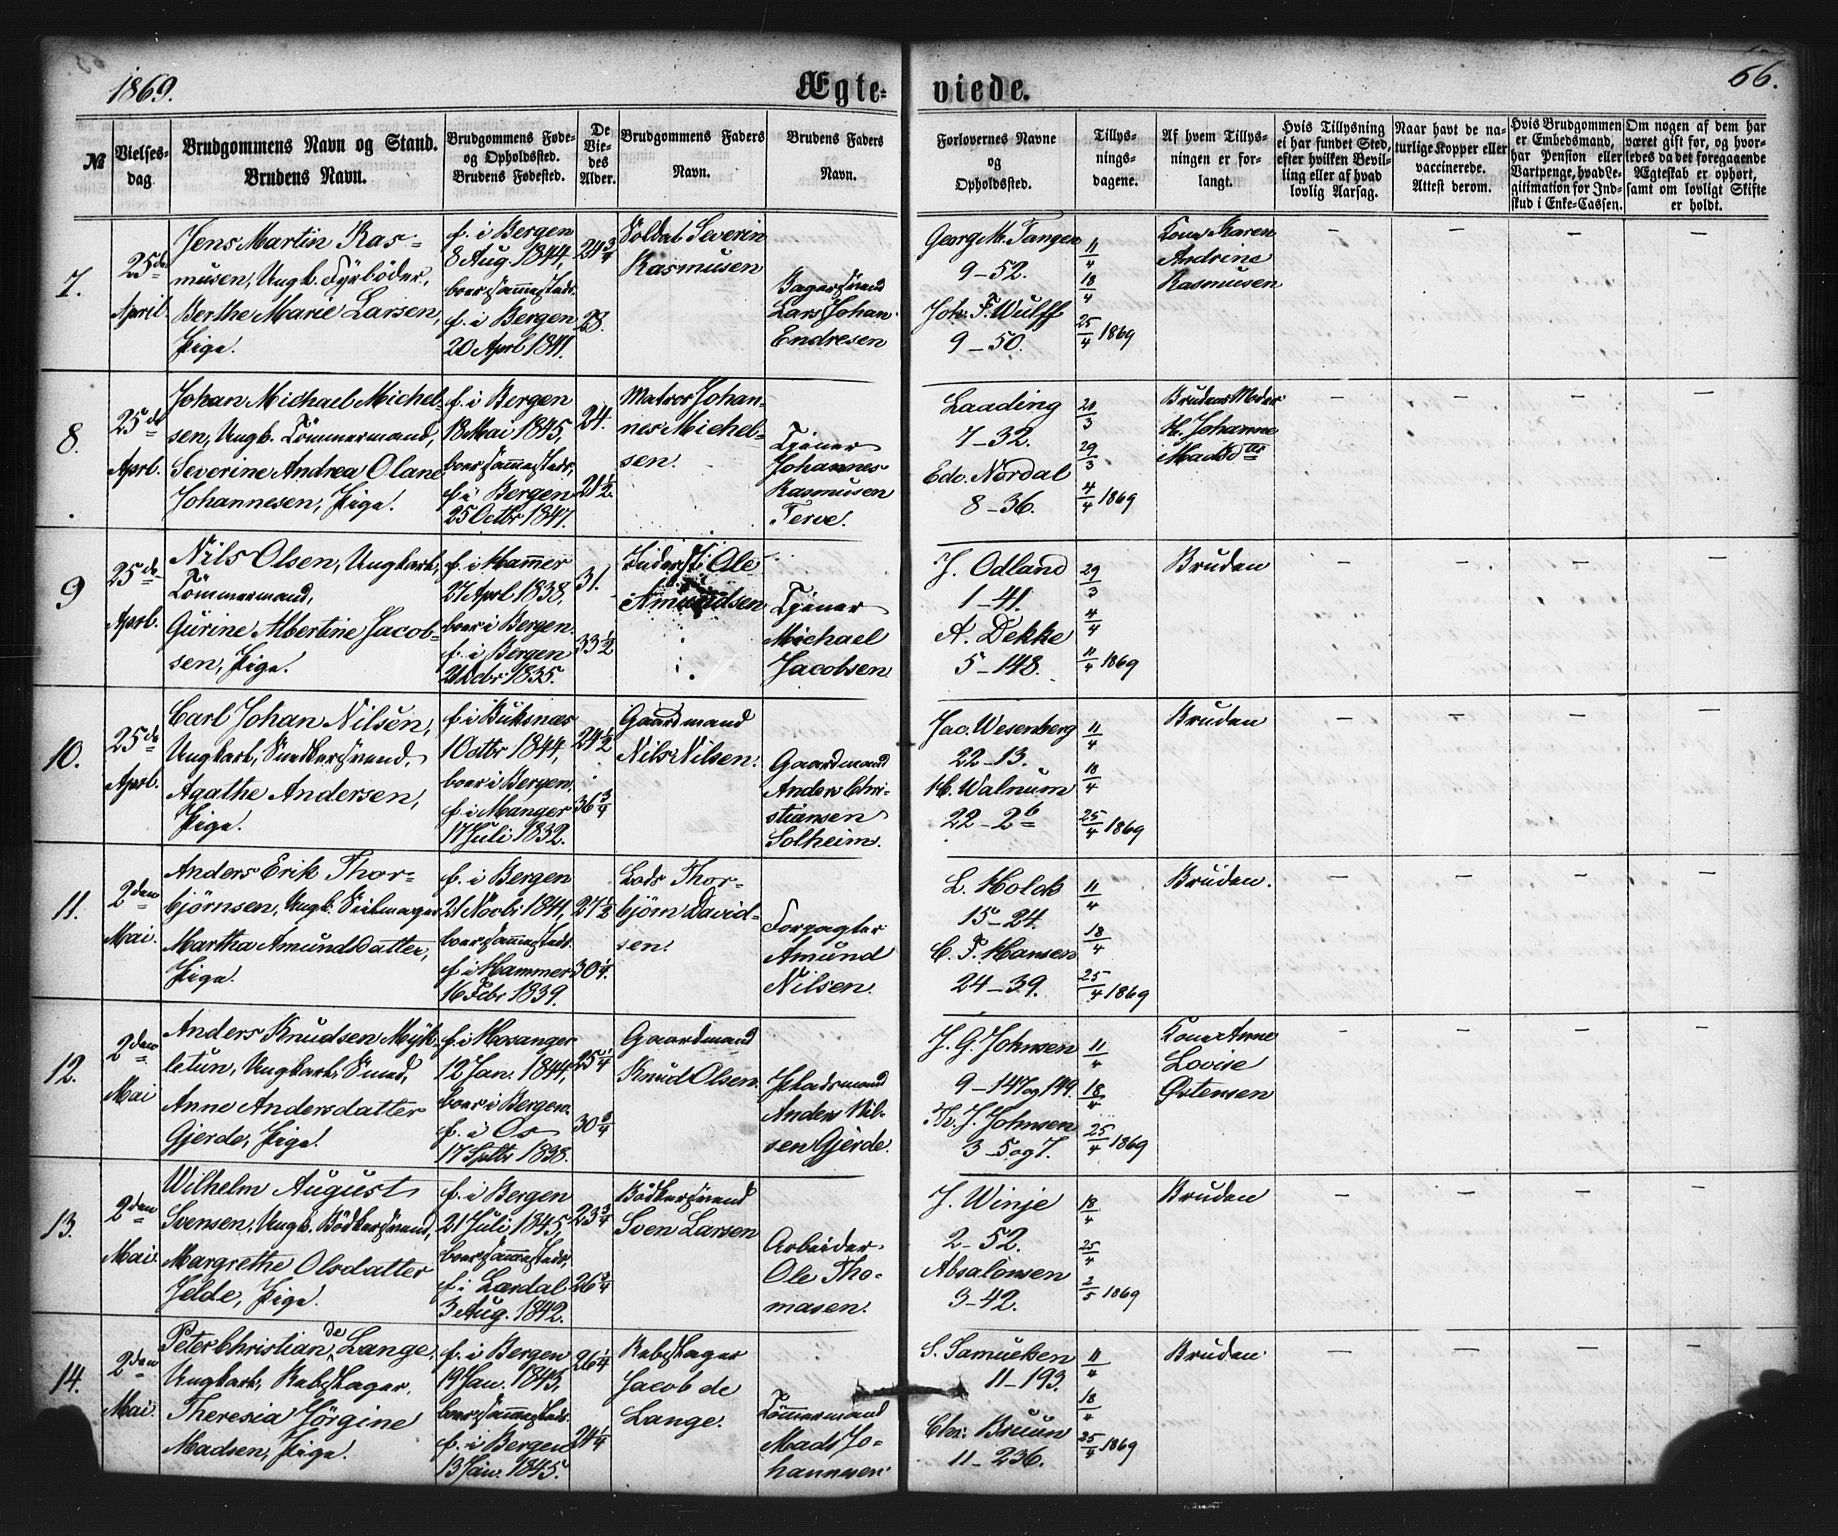 1869.
Ægte-
viede.
66.
№
Vielses-
dag.
Brudgommens Navn og Stand.
Brudens Navn.
Brudgommens Føde-
og Opholdssted.
Brudens Fødested.
De
Vie-
des
Alder.
Brudgommens Faders
Navn.
Brudens Faders
Navn.
Forlovernes Navne
og
Opholdssted.
Tillys-
nings-
dagene.
Af hvem Tillys-
ningen er for-
langt.
Hvis Tillysning
ei har fundet Sted,
efter hvilken Bevil-
ling eller af hvad
lovlig Aarsag.
Naar havt de na-
turlige Kopper eller
vaccinerede.
Attest derom.
Hvis Brudgommen
er Embedsmand,
har Pension eller
Vartpenge, hvad Le-
gitimation for Ind-
skud i Enke-Cassen.
Om nogen af dem har
været gift før, og hvor-
ledes da det foregaaende
Ægteskab er ophørt,
samt om lovligt Skifte
er holdt.
7.
25de
April.
Jens Martin Ras-
musen, Ungk. Fyrböder,
Berthe Marie Larsen,
Pige.
f. i Bergen
8 Aug. 1844,
boer sammesteds.
f. i Bergen
20 Aprl 1841.
24 3/4
28.
Soldat Severin
Rasmusen
Bagersvend
Lars Johan
Endresen
Georg M. Tangen
9-52.
Joh. F. Wulff
9-50.
11/4
18/4
25/4 1869
Kone Karen
Andrine
Rasmusen
– – – –
8.
25de
Aprl.
Johan Michael Michel-
sen, Ungk. Tömmermand,
Severine Andrea Olane
Johannesen, Pige.
f. i Bergen
18 Mai 1845,
boer sammesteds,
f. i Bergen
25 Octbr 1847.
24.
21 1/2.
Matros Johan-
nes Michel-
sen.
Tjener
Johannes
Rasmusen
Terve.
Laading
7-32.
Edv. Nordal
8-36.
29/3
4/4 1869
Brudens Moder
Johanne
Madsdtr
– – – –
9
25de
Aprl.
Nils Olsen, Ungkarl,
Tömmermand,
Gurine Albertine Jacob-
sen, Pige.
f. i Hammer
27 Aprl 1838,
boer i Bergen.
f. i Bergen
1835.
31.
33 1/2
Inderst Ole
Amundsen
Tjener
Michael
Jacobsen
J. Odland
1-41.
A. Dekke
5-148.
29/3
4/4
11/4 1869
Bruden
– – – –
10.
25de
Aprl.
Carl Johan Nilsen,
Ungkarl, Snedkersvend,
Agathe Andersen,
Pige.
f. i Buksnæs
1 Octbr 1844,
boer i Bergen,
f. i Manger
17 Juli 1832.
24 1/2
36 3/4
Gaardmand
Nils Nilsen.
Gaardmand
Anders Chri-
stiansen
Solheim.
Jac. Wesenberg
22-13.
H. Walnum
22-2b
11/4
18/4
25/4 1869
Bruden
– – – –
11.
2den
Mai.
Anders Erik Thor-
björnsen, Ungk. Seilmager
Martha Amundsdatter,
Pige.
f. i Bergen
21 Novbr 1841,
boer sammesteds.
f. i Hammer
16 Febr 1839.
27 1/2
30 1/4.
Lods Thor-
björn David-
sen.
Forpagter
Amund
Nilsen.
L. Holck
15-24.
C. P. Hansen
24-39.
11/4
18/4
25/4 1869
Bruden.
– – – –
12.
2den
Mai
Anders Knudsen Myk-
letun, Ungkarl, Smed,
Anne Andersdatter
Gjerde, Pige.
f. i Hosanger
12 Jan. 1844,
boer i Bergen.
f. i Os
17 Septbr 1838.
25 1/4
30 3/4
Gaardmand
Knud Olsen.
Pladsmand
Anders Nil-
sen Gjerde.
J. G. Johnsen
9-147 og 149.
J. Johnsen
3-5 og 7.
11/4
18/4
25/4 1869
Kone Anne
Lovise
Østensen
– – – –
13.
2den
Mai.
Wilhelm August
Svensen, Ungk. Bödkersvend,
Margrethe Olsdatter
Jelde, Pige.
f. i Bergen
21 Juli 1845,
boer sammesteds,
f. i Lærdal
3 Aug. 1842.
23 3/4
26 3/4
Bödkersvend
Sven Larsen
Arbeider
Ole Tho-
masen.
J. Winje
2-52.
Absalonsen
3-42.
18/4
25/4
2/5 1869
Bruden
– – – –
14.
2den
Mai.
Peter Christian de Lange,
Ungkarl, Rebslager,
Theresia Jörgine
Madsen, Pige.
f. i Bergen
19 Jan. 1843,
boer sammesteds.
f. i Bergen
13 Jan. 1845.
26 1/4
24 1/4
Rebslager
Jacob de
Lange.
Tömmermand
Mads Jo-
hannesen.
S. Samuelsen
11-193.
Chr: Bruun
11-236.
11/4
18/4
25/4 1869
Bruden
– – – –